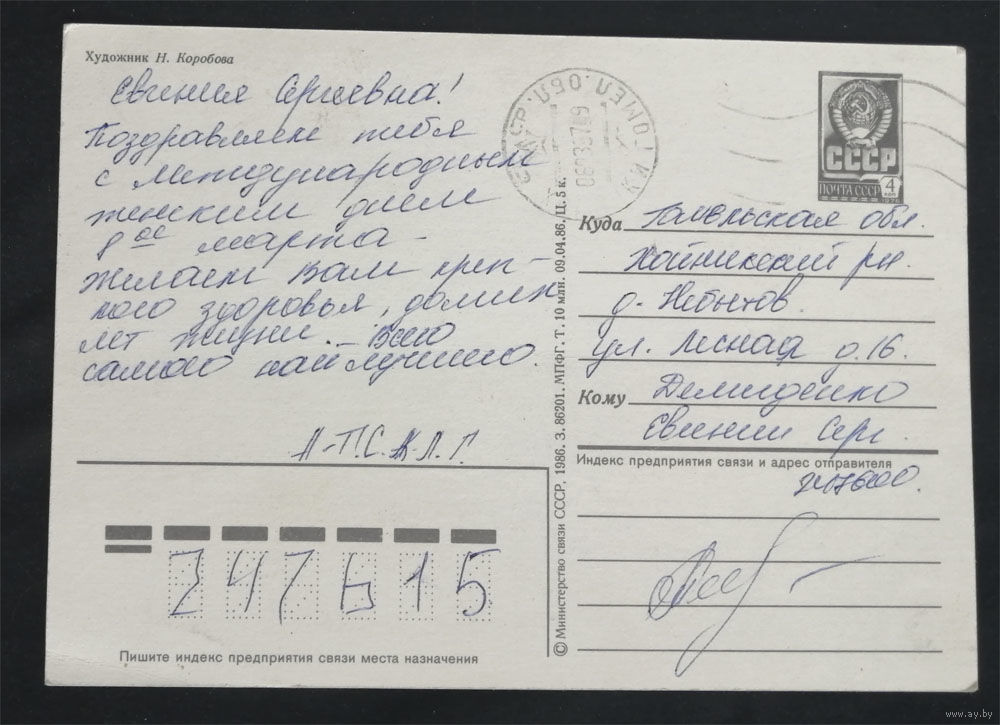 Художник Н. Коробова
Евгения Сергеевна!
Поздравляем тебя
с международным
женским днем
8ое марта –
желаем Вам креп-
кого здоровья, долгих
лет жизни. Всего
самого найлучшего.
А-П.С.
247615
Пишите индекс предприятия связи места назначения
© Министерство связи СССР, 1986. З. 86201. МПФГ. Т. 10 млн. 09.04.86. Ц. 5 к.
СССР
ПОЧТА СССР
4
Куда Гомельская обл.
Хойникский рн.
д. Небытов
ул. Лесная д. 16.
Кому Демиденко
Евгении Серг.
Индекс предприятия связи и адрес отправителя
247600.
www.ay.by